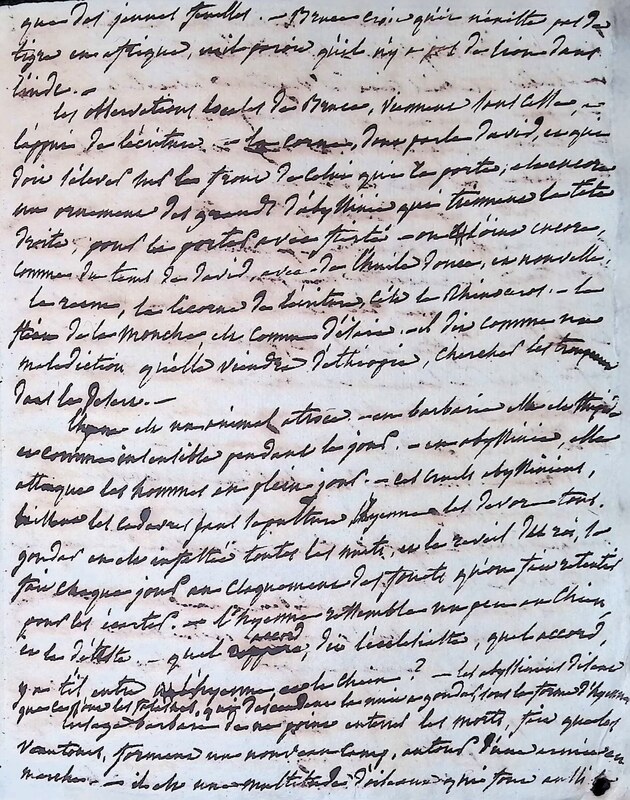 que des jeunes femelles. – Bruce croit qu'il n'existe pas de
tigre en afrique, mais pense qu'il n'y a pas de lion dans
l'inde. –
les observations locales de Bruce, viennent sans cesse, à
l'appui de l'écriture – la corne, dont parle david, et que
doit s'élever sur le front de celui qui la porte, est encore
un ornement des grands d'abyssinie qui tiennent la tête
droite, pour la porter avec fierté – on s'oint encore,
comme du tems de david, avec de l'huile douce, et nouvelle.
le reem, la licorne de l'écriture, c'est le Rhinoceros. – le
fléau de la mouche est connu d'isaïe. – il dit comme une
malediction qu'elle viendra d'éthiopie, chercher les troupeaux
dans le desert. –
l'hyene est un animal atroce – en barbarie elle est
et comme insensible pendant le jour. – en abyssinie, elle
attaque les hommes en plein jour. – ces cruels abyssiniens,
laissent les cadavres sans sepulture l'hyenne les devore tous.
gondar en est infestée toutes les nuits, et le reveil du roi, se
fait chaque jour au claquement des fouets qu'on fait retentir
pour les écarter. – l'hyenne ressemble un peu au chien,
et le déteste. – quel accord, dit l'eclesiaste, quel accord,
y a t'il, entre l'hyenne, et le chien ? – les abyssiniens disent
que ce sont les falashas, qui descendent la nuit a gondar, sous la forme d'hyennes
l'usage barbare de ne point enterrer les morts, fait que les
vautours, forment un nouveau camp, autour d'une armée en
marche. – il est une multitude d'oiseaux qui font